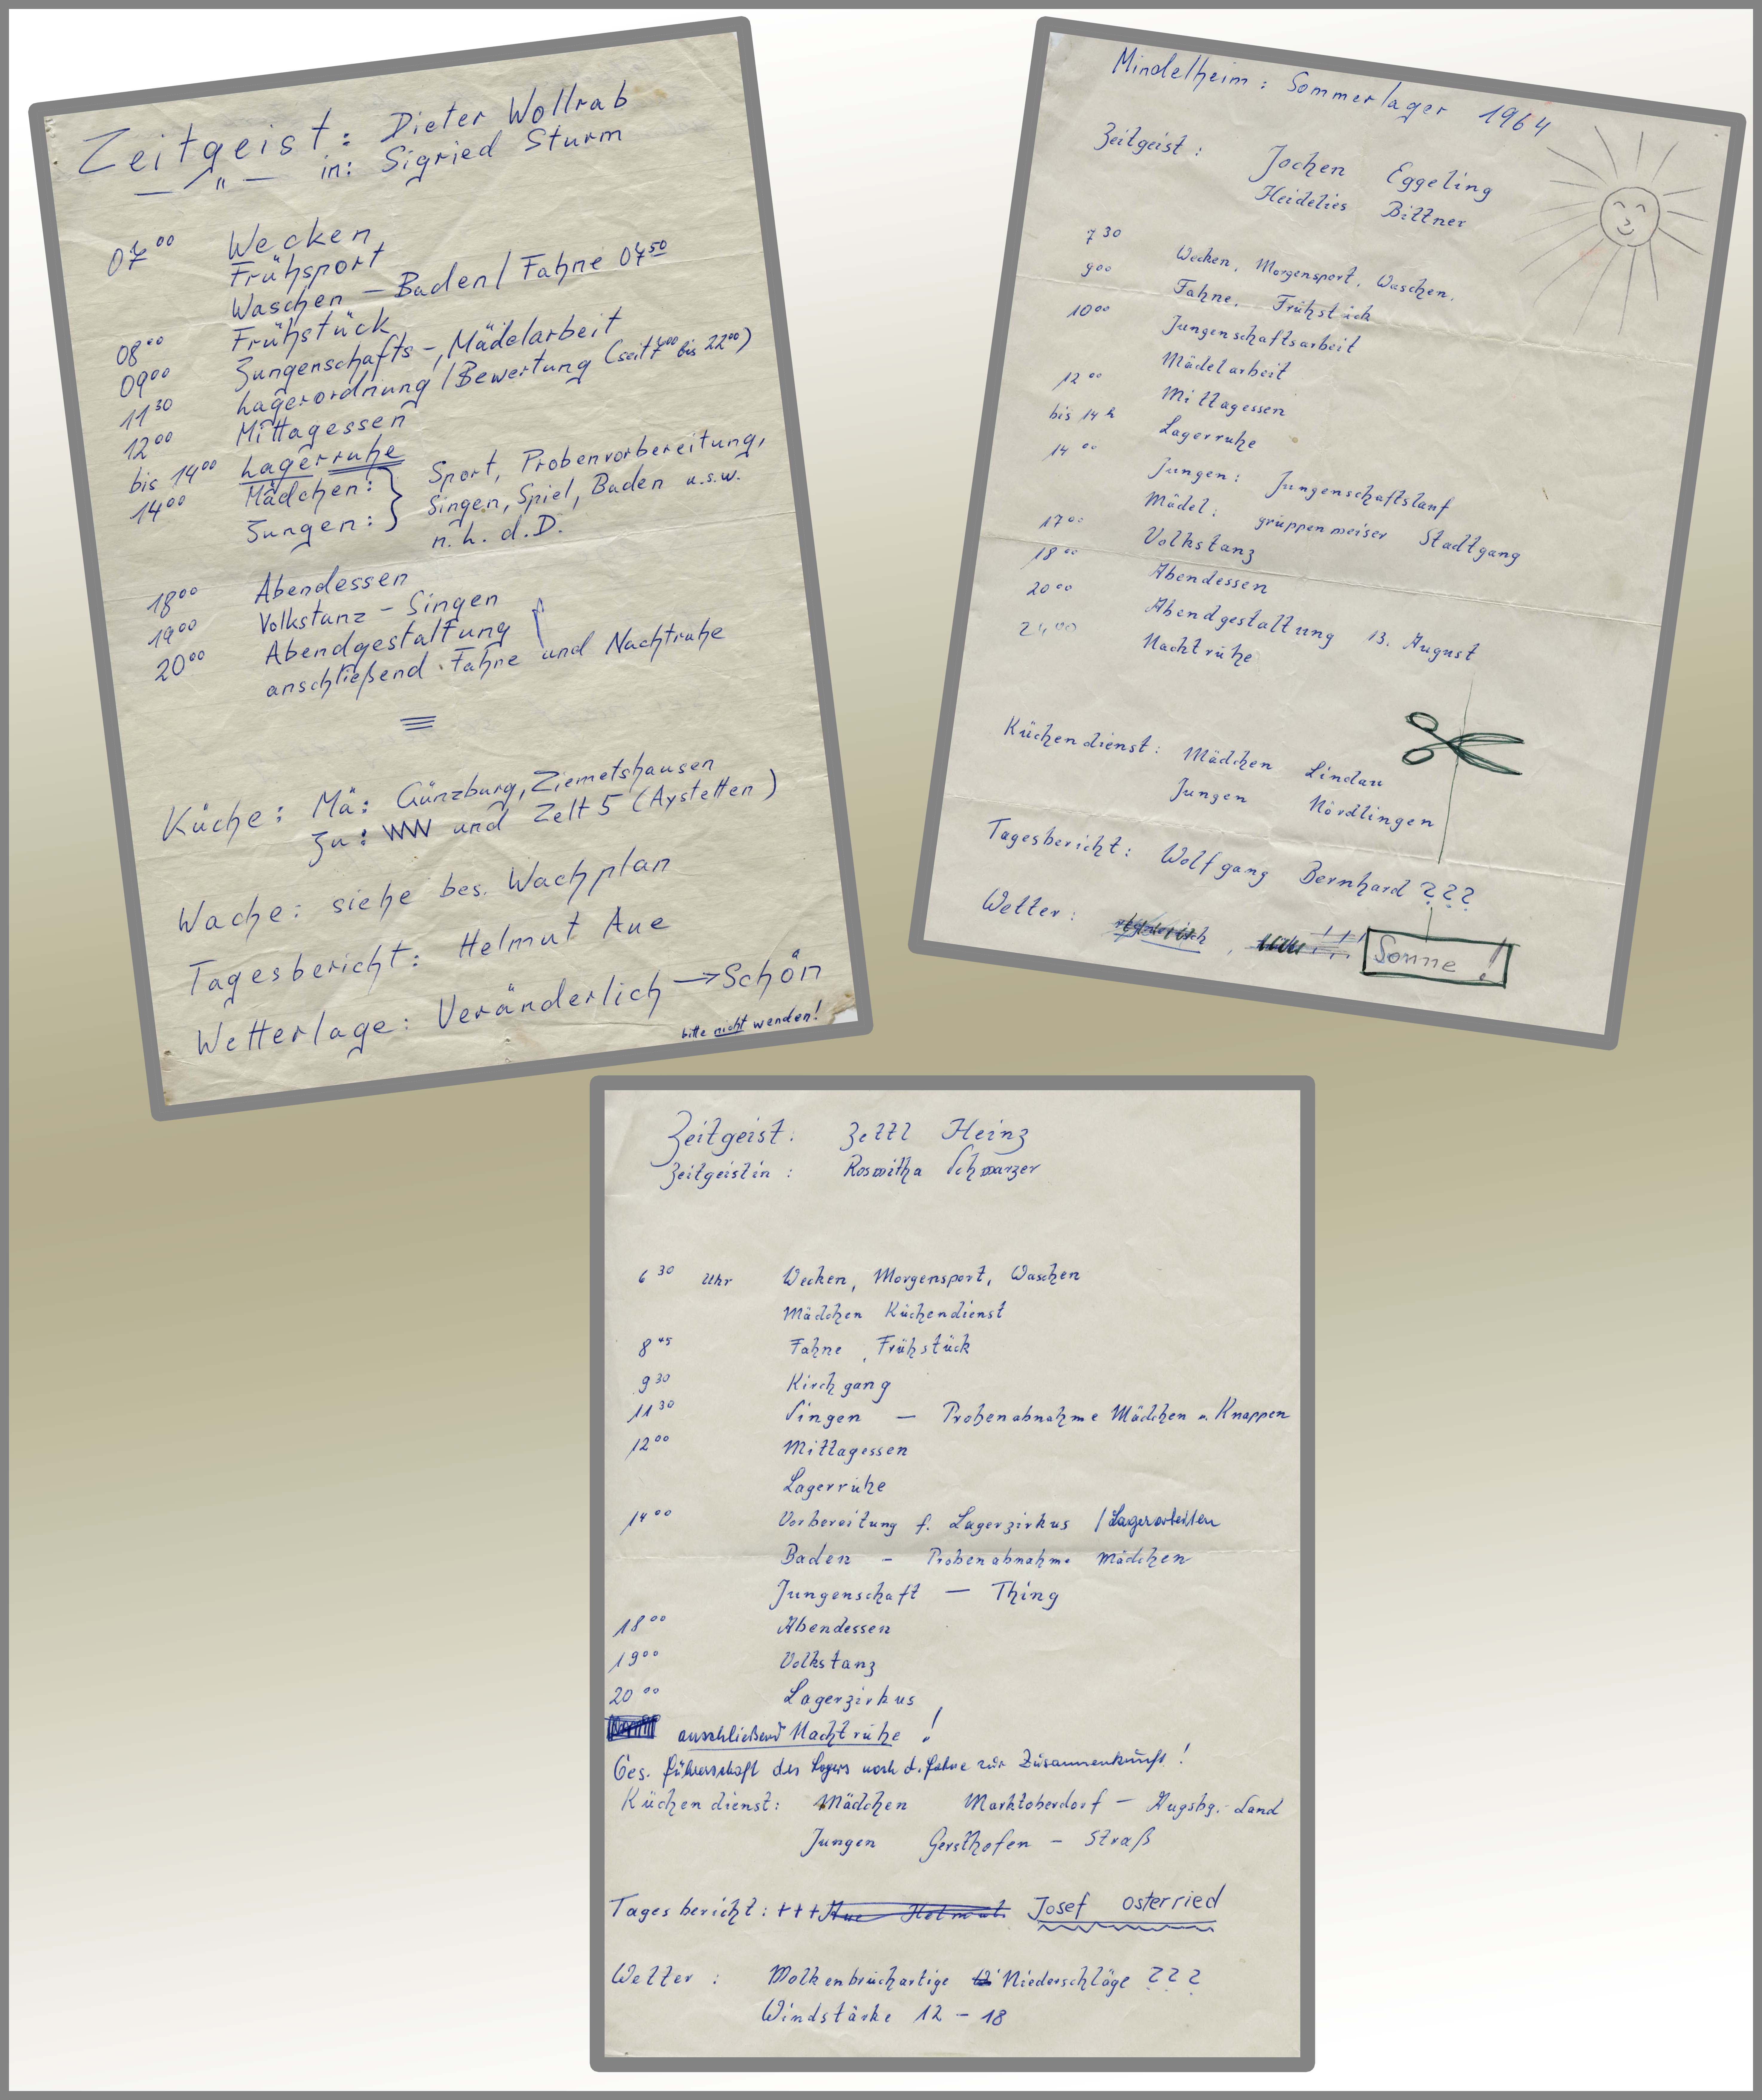 Zeitgeist: Dieter Wollrab
— " — in: Sigried Sturm
07⁰⁰ Wecken,
Frühsport
Waschen – Baden / Fahne 07⁵⁰
08⁰⁰ Frühstück
09⁰⁰ Jungenschafts-, Mädelarbeit
11³⁰ Lagerordnung / Bewertung (seit 7⁰⁰ bis 22⁰⁰)
12⁰⁰ Mittagessen
bis 14⁰⁰ Lagerruhe
14⁰⁰ Mädchen: } Sport, Probenvorbereitung,
Jungen: Singen, Spiel, Baden u.s.w.
n. h. d. D.
18⁰⁰ Abendessen
19⁰⁰ Volkstanz – Singen
20⁰⁰ Abendgestaltung
anschließend Fahne und Nachtruhe
Küche: Mä: Günzburg, Ziemetshausen
Ju: und Zelt 5 (Aystetten)
Wache: siehe bes. Wachplan
Tagesbericht: Helmut Aue
Wetterlage: Veränderlich → Schön
bitte nicht wenden!
Mindelheim: Sommerlager 1964
Zeitgeist: Jochen Eggeling
Heidelies Bittner
7³⁰ Wecken, Morgensport, Waschen.
9⁰⁰ Fahne, Frühstück
10⁰⁰ Jungenschaftsarbeit
Mädelarbeit
12⁰⁰ Mittagessen
bis 14 h Lagerruhe
14⁰⁰ Jungen: Jungenschaftslauf
Mädel: gruppenweiser Stadtgang
17⁰⁰ Volkstanz
18⁰⁰ Abendessen
20⁰⁰ Abendgestaltung 13. August
24⁰⁰ Nachtruhe
Küchendienst: Mädchen Lindau
Jungen Nördlingen
Tagesbericht: Wolfgang Bernhard ???
Wetter: Sonne!
Zeitgeist: Zettl Heinz
Zeitgeistin: Roswitha Schwarzer
6³⁰ Uhr Wecken, Morgensport, Waschen
Mädchen Küchendienst
8⁴⁵ Fahne, Frühstück
9³⁰ Kirchgang
11³⁰ Singen — Probenabnahme Mädchen u. Knappen
12⁰⁰ Mittagessen
Lagerruhe
14⁰⁰ Vorbereitung f. Lagerzirkus / Lagerarbeiten
Baden – Probenabnahme Mädchen
Jungenschaft — Thing
18⁰⁰ Abendessen
19⁰⁰ Volkstanz
20⁰⁰ Lagerzirkus
anschließend Nachtruhe!
Ges. Führerschaft des Lagers nach d. Fahne zur Zusammenkunft!
Küchendienst: Mädchen Marktoberdorf – Augsbg. Land
Jungen Gersthofen – Straß
Tagesbericht: +++ Aue Helmut Josef Osterried
Wetter: Wolkenbruchartige Niederschläge ???
Windstärke 12 – 18